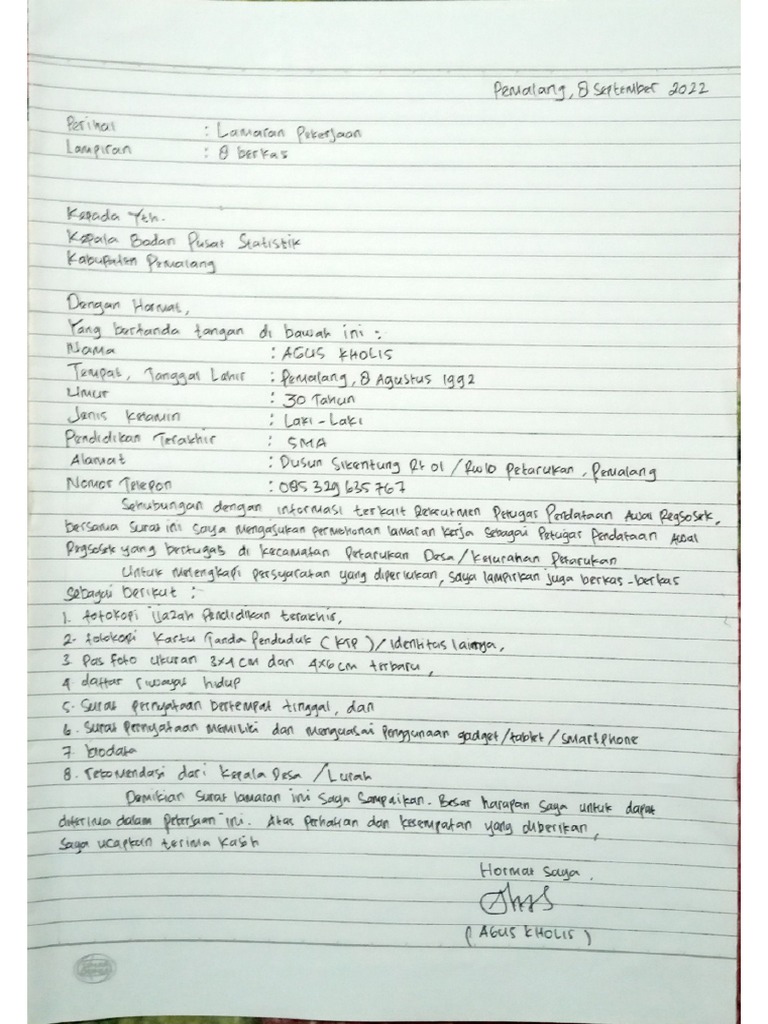 Pemalang, 8 September 2022
Perihal : Lamaran Pekerjaan
Lampiran : 8 berkas
Kepada Yth.
Kepala Badan Pusat Statistik
Kabupaten Pemalang
Dengan Hormat,
Yang bertanda tangan di bawah ini :
Nama : AGUS KHOLIS
Tempat, Tanggal Lahir : Pemalang, 8 Agustus 1992
Umur : 30 Tahun
Jenis Kelamin : Laki-Laki
Pendidikan Terakhir : SMA
Alamat : Dusun Sikentung Rt 01 / Rw 10 Petarukan, Pemalang
Nomor Telepon : 085329635767
Sehubungan dengan informasi terkait Rekrutmen Petugas Pendataan Awal Regsosek,
bersama surat ini saya mengajukan permohonan lamaran kerja sebagai Petugas Pendataan Awal
Regsosek yang bertugas di kecamatan Petarukan Desa/Kelurahan Petarukan
Untuk melengkapi persyaratan yang diperlukan, saya lampirkan juga berkas-berkas
sebagai berikut :
1. fotokopi ijazah pendidikan terakhir,
2. fotokopi Kartu Tanda Penduduk (KTP)/Identitas lainnya,
3 Pas foto ukuran 3x4 cm dan 4x6 cm terbaru,
4 daftar riwayat hidup
5. Surat pernyataan bertempat tinggal, dan
6. Surat pernyataan memiliki dan menguasai penggunaan gadget/tablet/smartphone
7. biodata
8. rekomendasi dari Kepala Desa / Lurah
Demikian surat lamaran ini saya sampaikan. Besar harapan saya untuk dapat
diterima dalam pekerjaan ini. Atas perhatian dan kesempatan yang diberikan,
saya ucapkan terima kasih
Hormat saya.
(AGUS KHOLIS)